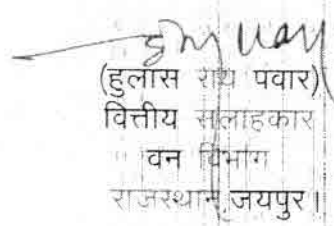 (हुलास राय पवार)
वित्तीय सलाहकार
वन विभाग
राजस्थान, जयपुर।